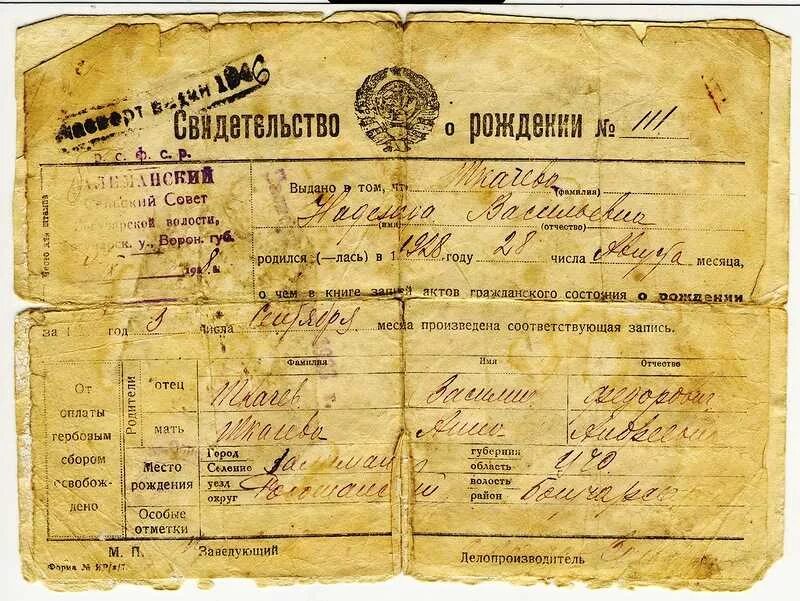 паспорт выдан 1946
Свидетельство о рождении № 111
Р. С. Ф. С. Р.
Сельский Совет
волости,
у., Ворон. губ.
Место для штампа
Выдано в том, что Ткачева
(фамилия)
Надежда Васильевна
(имя) (отчество)
родился (—лась) в 1928 году 28 числа Августа месяца,
о чем в книге записей актов гражданского состояния о рождении
за год 3 числа Сентября месяца произведена соответствующая запись.
Фамилия Имя Отчество
От оплаты гербовым сбором освобождено
Родители
отец Ткачев Василий Федорович
мать Ткачева Анна Андреевна
Место рождения
Город губерния
Селение область ЦЧО
уезд волость
округ район
Особые отметки
М. П. Заведующий Делопроизводитель
Форма №